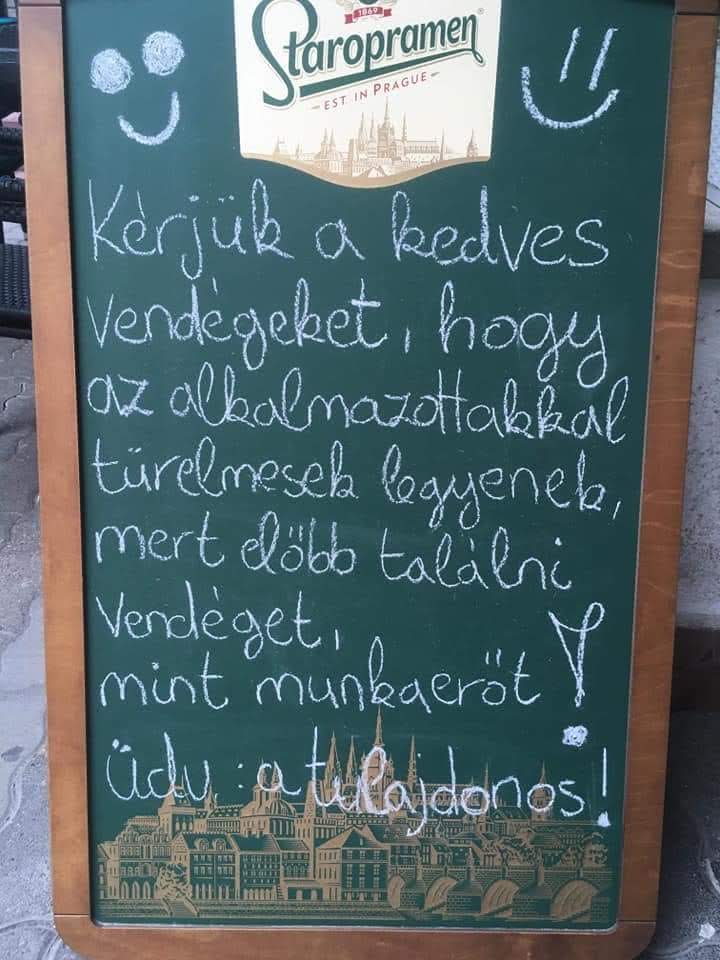 1869
Staropramen
EST. IN PRAGUE
Kérjük a kedves
vendégeket, hogy
az alkalmazottakkal
türelmesek legyenek,
mert előbb találni
vendéget,
mint munkaerőt!
Üdv : a tulajdonos!